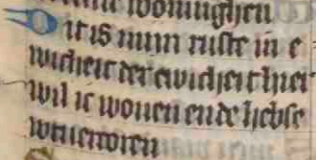 woninghen
Dit is mijn ruste in e
wicheit der ewicheit hier
wil ic wonen ende hebse
wtuercoren